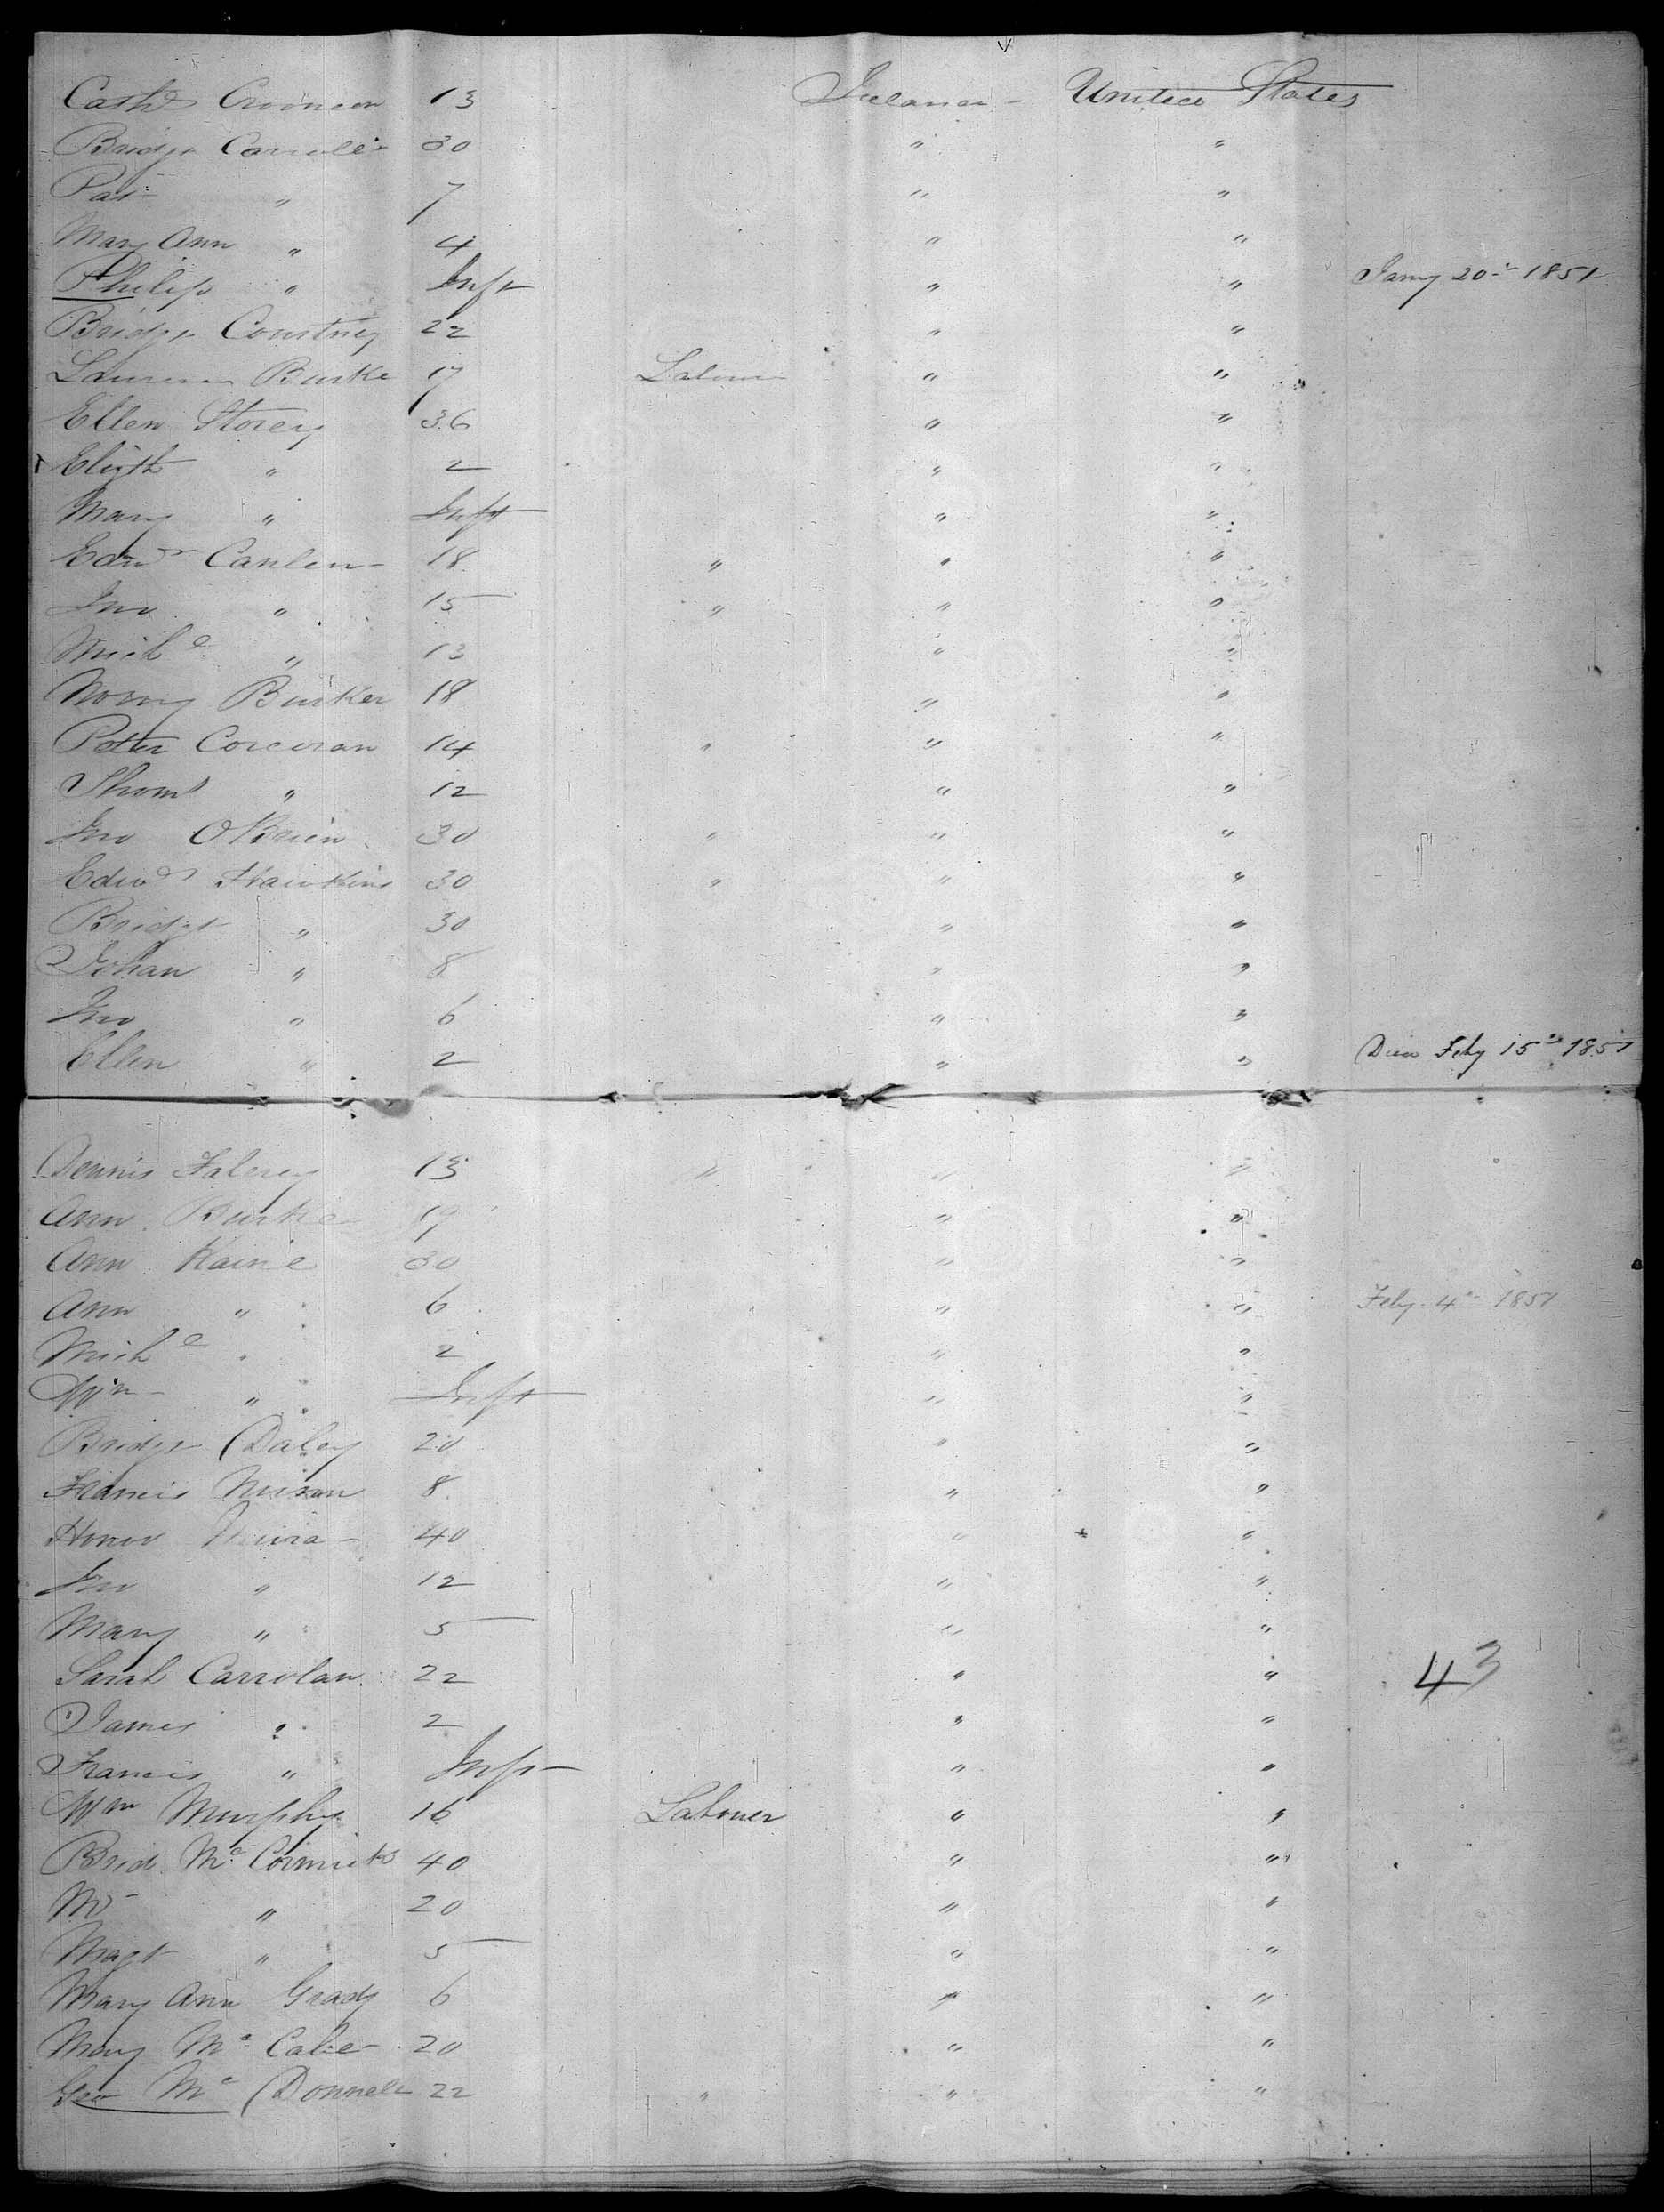 Cath 13 Ireland - United States
Bridgt 30 " "
Pat " 7 " "
Mary Ann " 4 " "
Philip " Inft " " Jany 20th 1851
Bridgt Courtney 22 " "
Burke 17 Labourer " "
Ellen Storey 36 " "
Elizth " 2 " "
Mary " Inft " "
Edwd Canlen 18 " " "
Jno " 15 " " "
Michl " 13 " "
Burker 18 " "
Peter Corcoran 14 " " "
Thoms " 12 " "
Jno OBrien 30 " " "
Edwd Hawkins 30 " " "
Bridgt " 30 " "
Johan " 8 " "
Jno " 6 " "
Ellen " 2 " " Died Feby 15th 1851
Dennis 13 " " "
Ann Burke 19 " "
Ann Kaine 30 " "
Ann " 6 " " Feby 4th 1851
Michl " 2 " "
Wm " Inft " "
Bridgt Daley 20 " "
Francis 8 " "
Honor 40 " "
Jno " 12 " "
Mary " 5 " "
Sarah Carrolan 22 " " 43
James " 2 " "
Francis " Inft " "
Wm Murphy 16 Labourer " "
Brid Mc Cormick 40 " "
" 20 " "
Magt " 5 " "
Mary Ann Grady 6 " "
Mary Mc Cabe 20 " "
Geo Mc Donnell 22 " " "